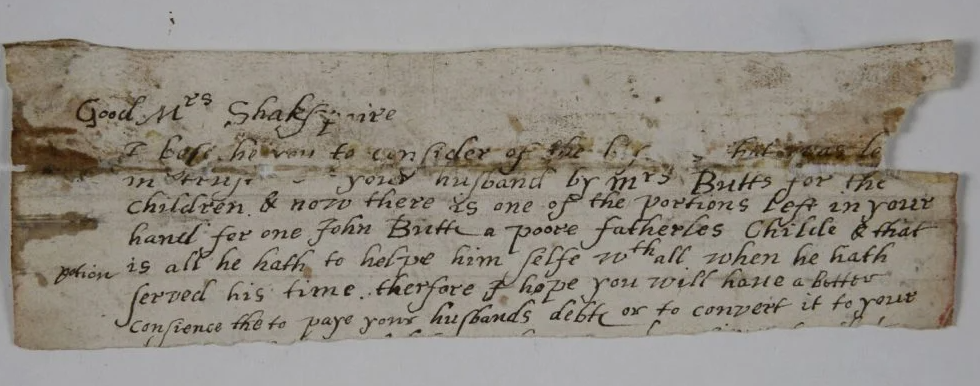 Good Mrs Shakspaire
I beseche you to consider of the that was le
in trust your husband by Mrs Butts for the
children & now there is one of the portions left in your
hand for one John Butte a poore fatherles Childe & that
potion is all he hath to helpe him selfe wth all when he hath
served his time therfore I hope you will have a better
Consience the to paye your husbands debte or to convert it to your